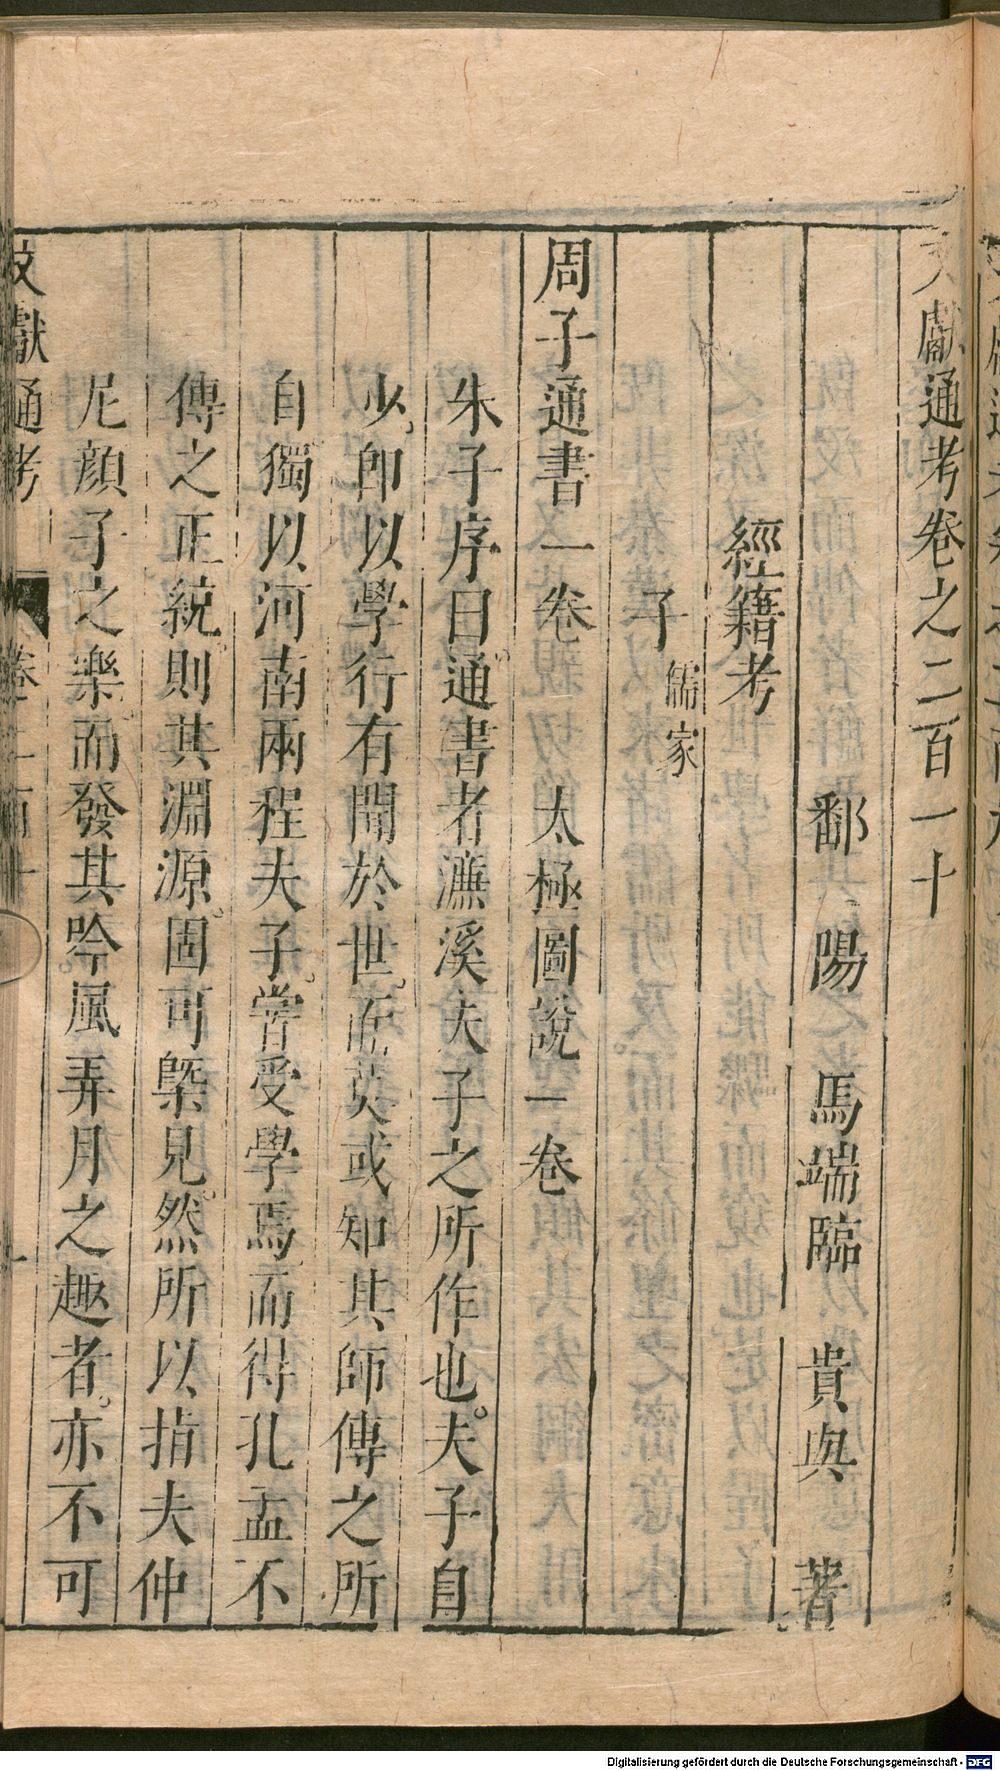 文獻通考卷之二百一十
鄱陽 馬端臨 貴與 著
經籍考
子 儒家
周子通書一卷 太極圖說一卷
朱子序曰通書者濂溪夫子之所作也。夫子自
少。即以學行有聞於世。而莫或知其師傳之所
自。獨以河南兩程夫子。嘗受學焉。而得孔孟不
傳之正統。則其淵源。固可槩見。然所以指夫仲
尼顏子之樂。而發其吟。風弄月之趣者。亦不可
文獻通考 卷二百十 一
Digitalisierung gefördert durch die Deutsche Forschungsgemeinschaft - DFG